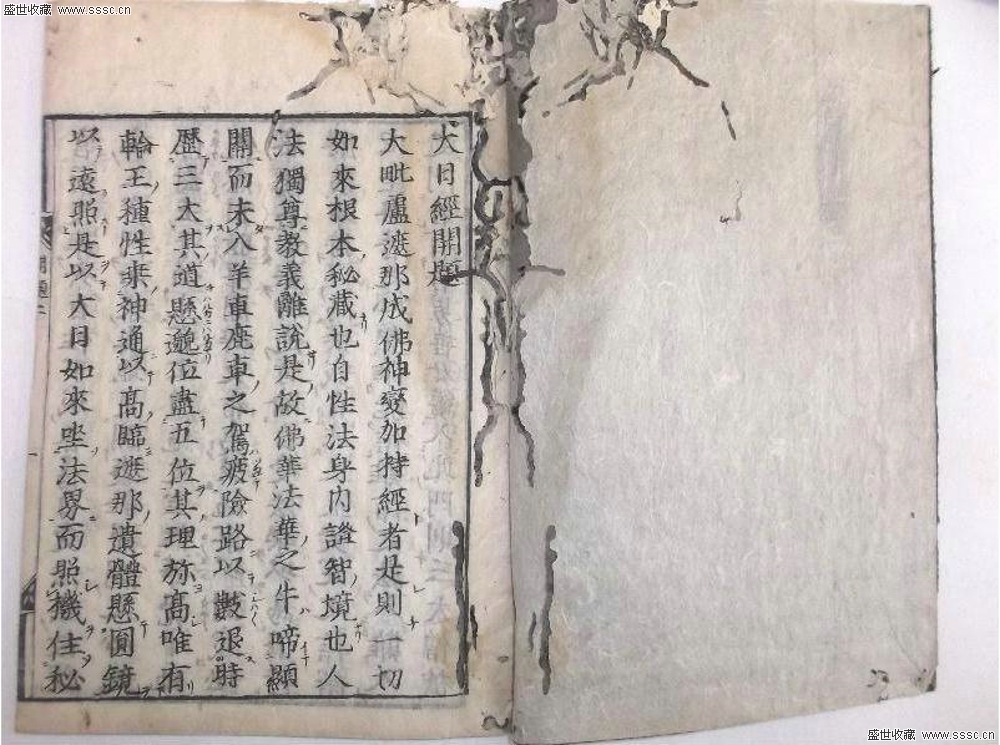 盛世收藏 www.sssc.cn
大日經開題
大毗盧遮那成佛神變加持經者是則一切
如來根本秘藏也自性法身內證智境也人
法獨尊教義離說是故佛華法華之牛啼顯
關而未入羊車鹿車之駕疲險路以數退時
歷三大其道懸邈位盡五位其理旀高唯有
輪王種性乘神通以高臨遮那遺體懸圓鏡
以遠照是以大日如來坐法界而照機住秘
盛世收藏 www.sssc.cn